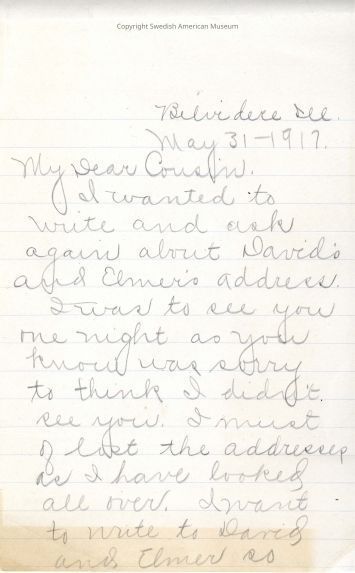 Copyright Swedish American Museum
Belvidere Ill.
May 31-1917.
My Dear Cousin.
I wanted to
write and ask
again about David's
and Elmer's address.
I was to see you
one night as you
know was sorry
to think I didn't.
see you. I must
of lost the addresses
as I have looked
all over. I want
to write to David
and Elmer so